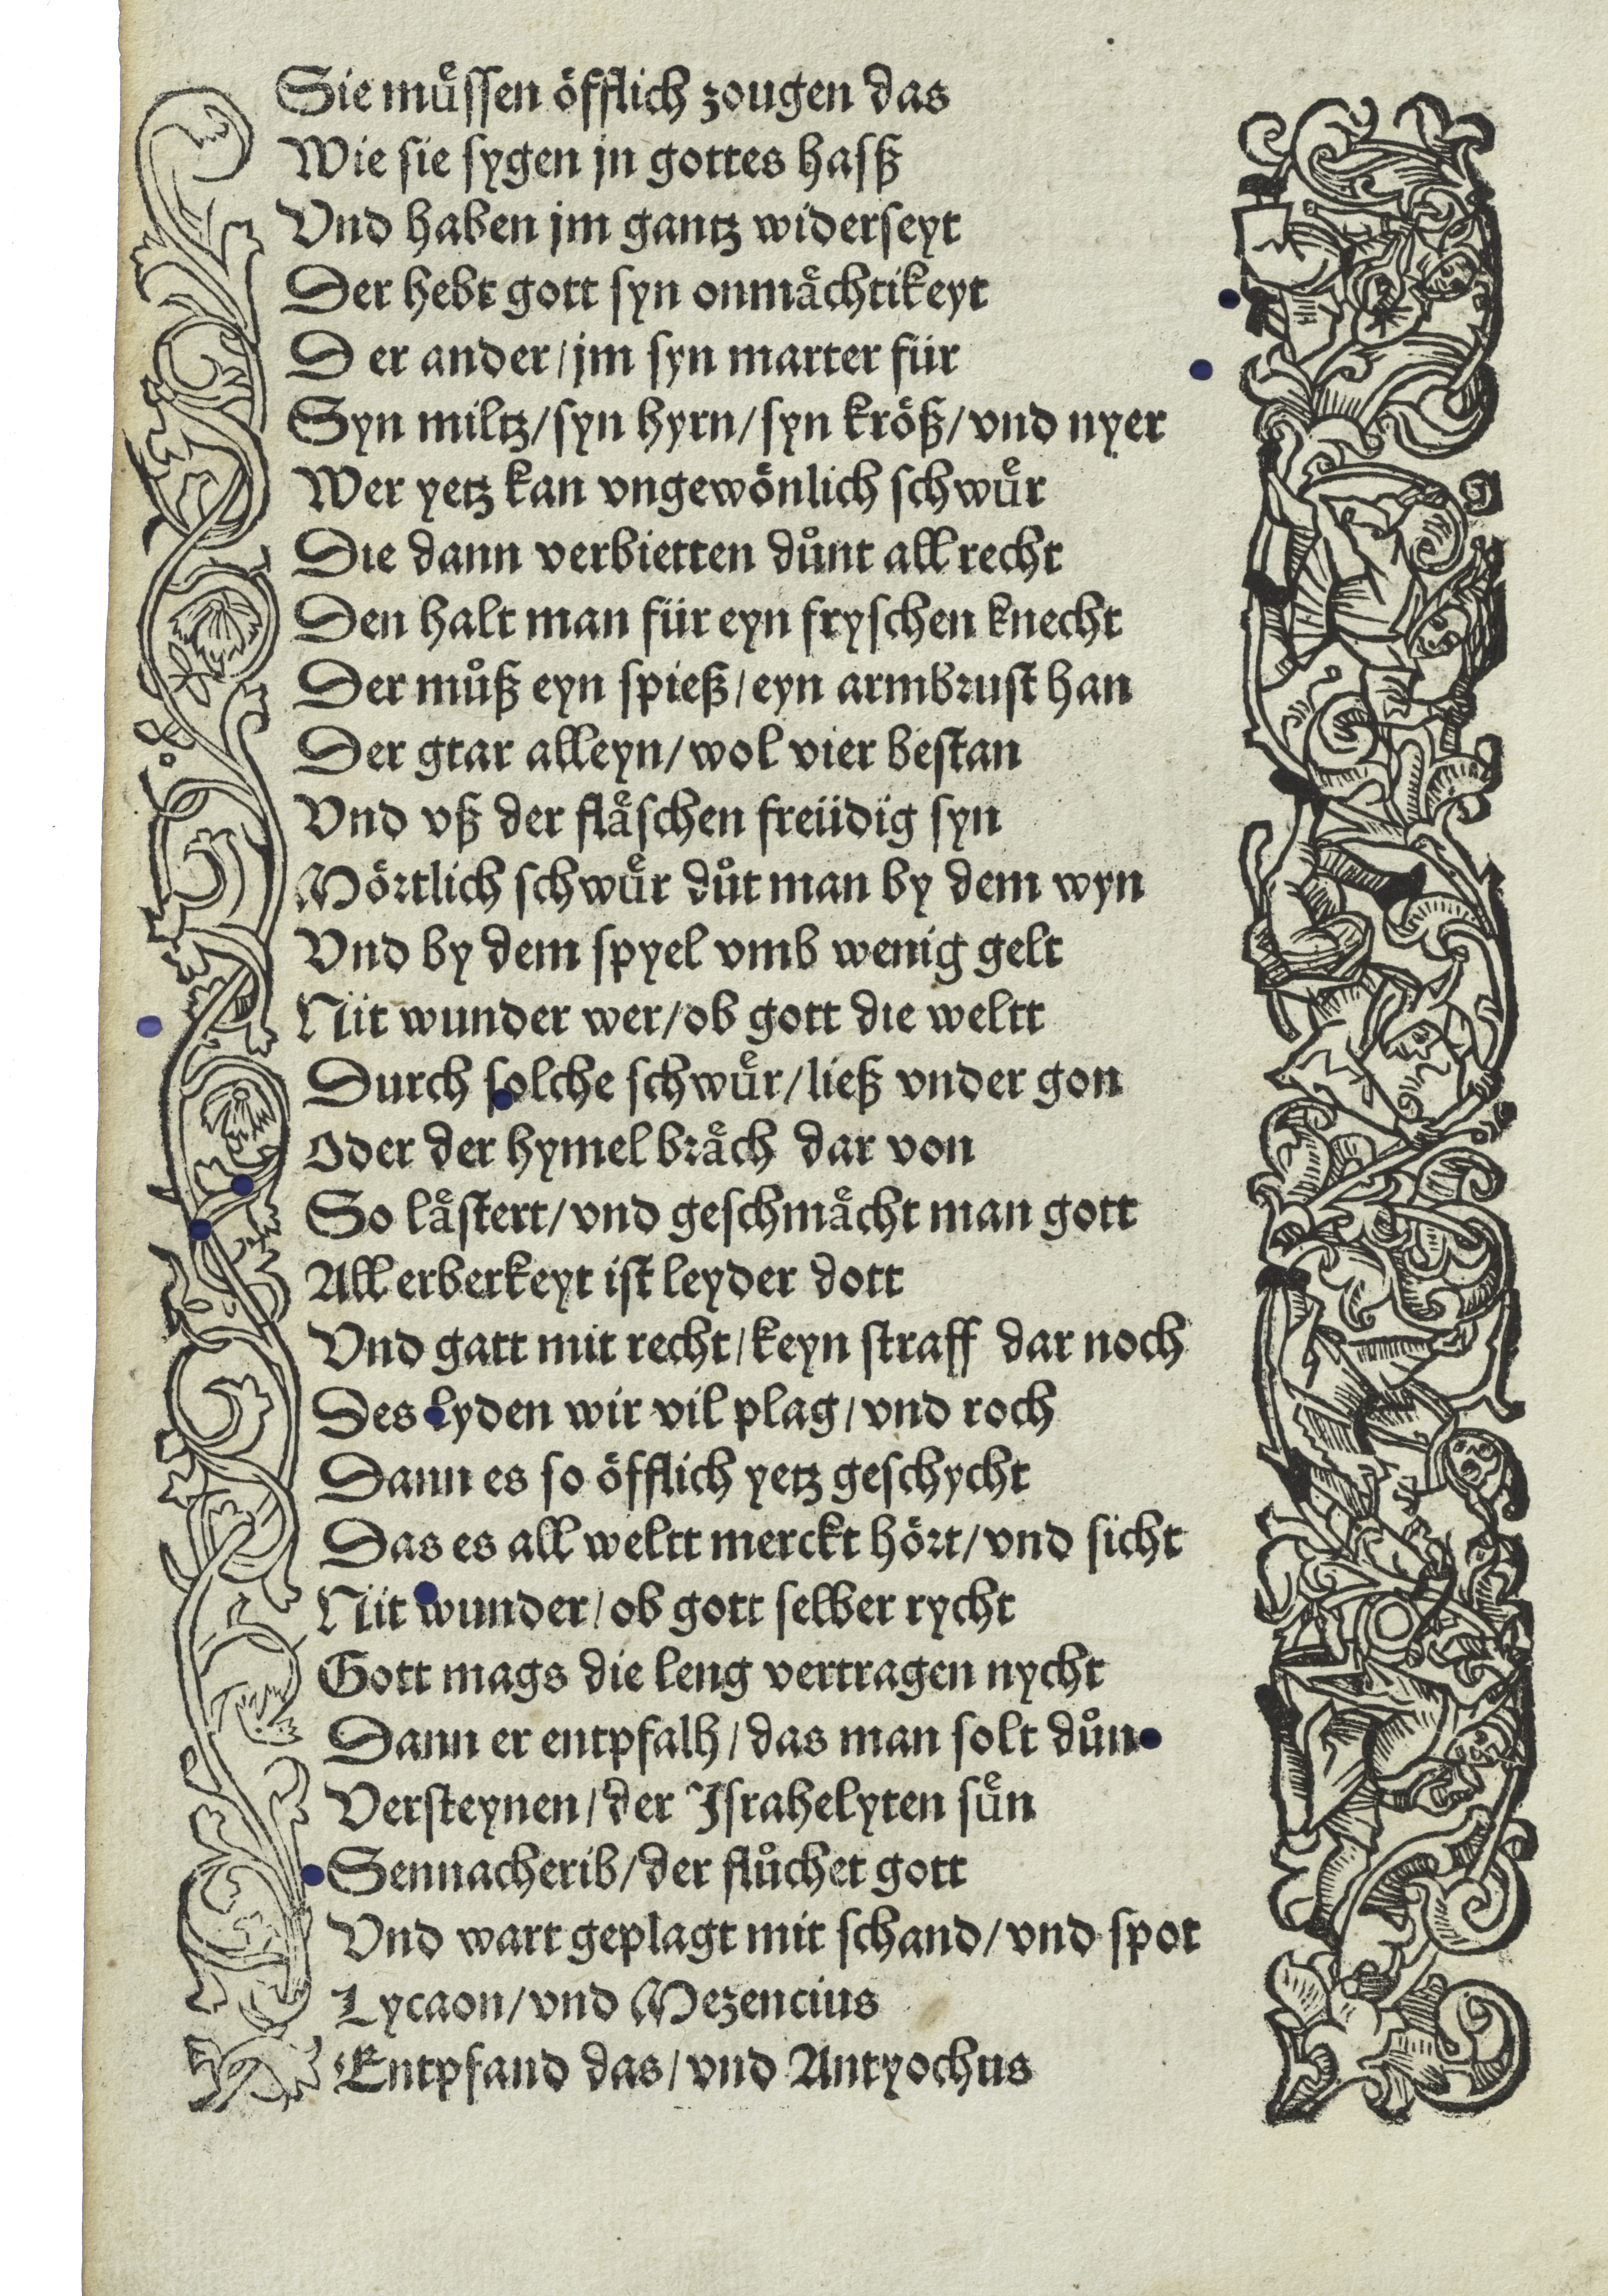 Sie muͤssen öfflich zougen das
Wie sie sygen jn gottes hasß
Vnd haben jm gantz widerseyt
Der hebt gott syn onmaͤchtikeyt
D er ander/jm syn marter für
Syn miltz/syn hyrn/syn kröß/vnd nyer
Wer yetz kan vngewönlich schwuͤr
Die dann verbietten důnt all recht
Den halt man für eyn fryschen knecht
Der můß eyn spieß/eyn armbrust han
Der gtar alleyn/wol vier bestan
Vnd vß der flaͤschen freüdig syn
Mörtlich schwuͤr důt man by dem wyn
Vnd by dem spyel vmb wenig gelt
Nit wunder wer/ob gott die weltt
Durch solche schwuͤr/ließ vnder gon
Oder der hymel braͤch dar von
So laͤstert/vnd geschmaͤcht man gott
All erberkeyt ist leyder dott
Vnd gatt mit recht/keyn straff dar noch
Des lyden wir vil plag/vnd roch
Dann es so öfflich yetz geschycht
Das es all weltt merckt hört/vnd sicht
Nit wunder/ob gott selber rycht
Gott mags die leng vertragen nycht
Dann er entpfalh/das man solt důn
Versteynen/der Israhelyten suͤn
Sennacherib/der flůchet gott
Vnd wart geplagt mit schand/vnd spot
Lycaon/vnd Mezencius
Entpfand das/vnd Antyochus